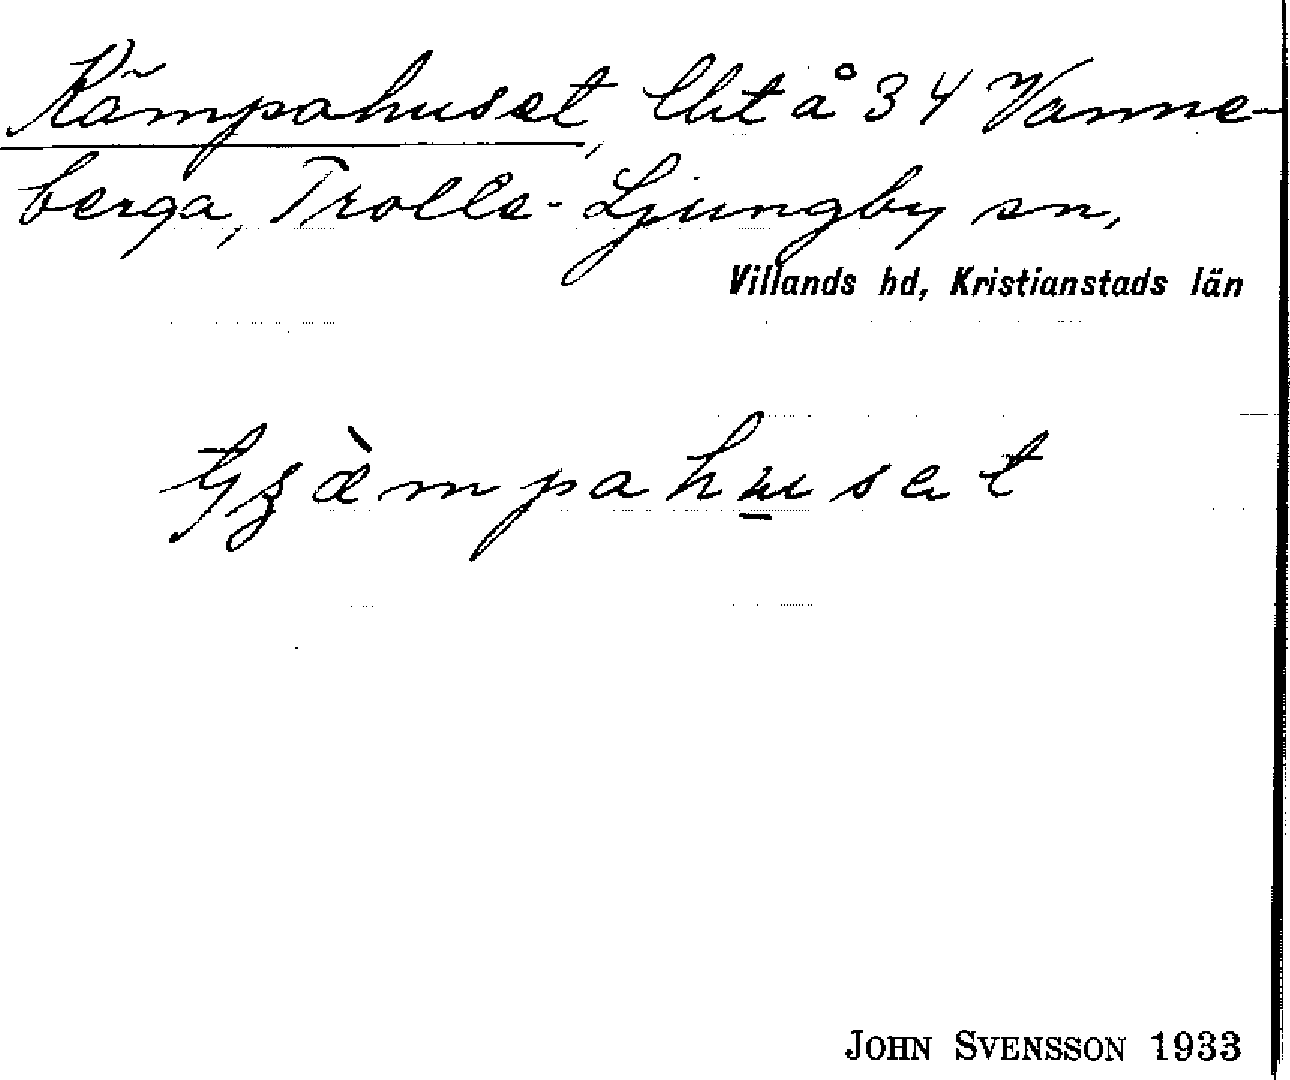 Kämpahuset, lht å 34 Vanne-
berga, Trolle-Ljungby sn,
Villands hd, Kristianstads län
JOHN SVENSSON 1933